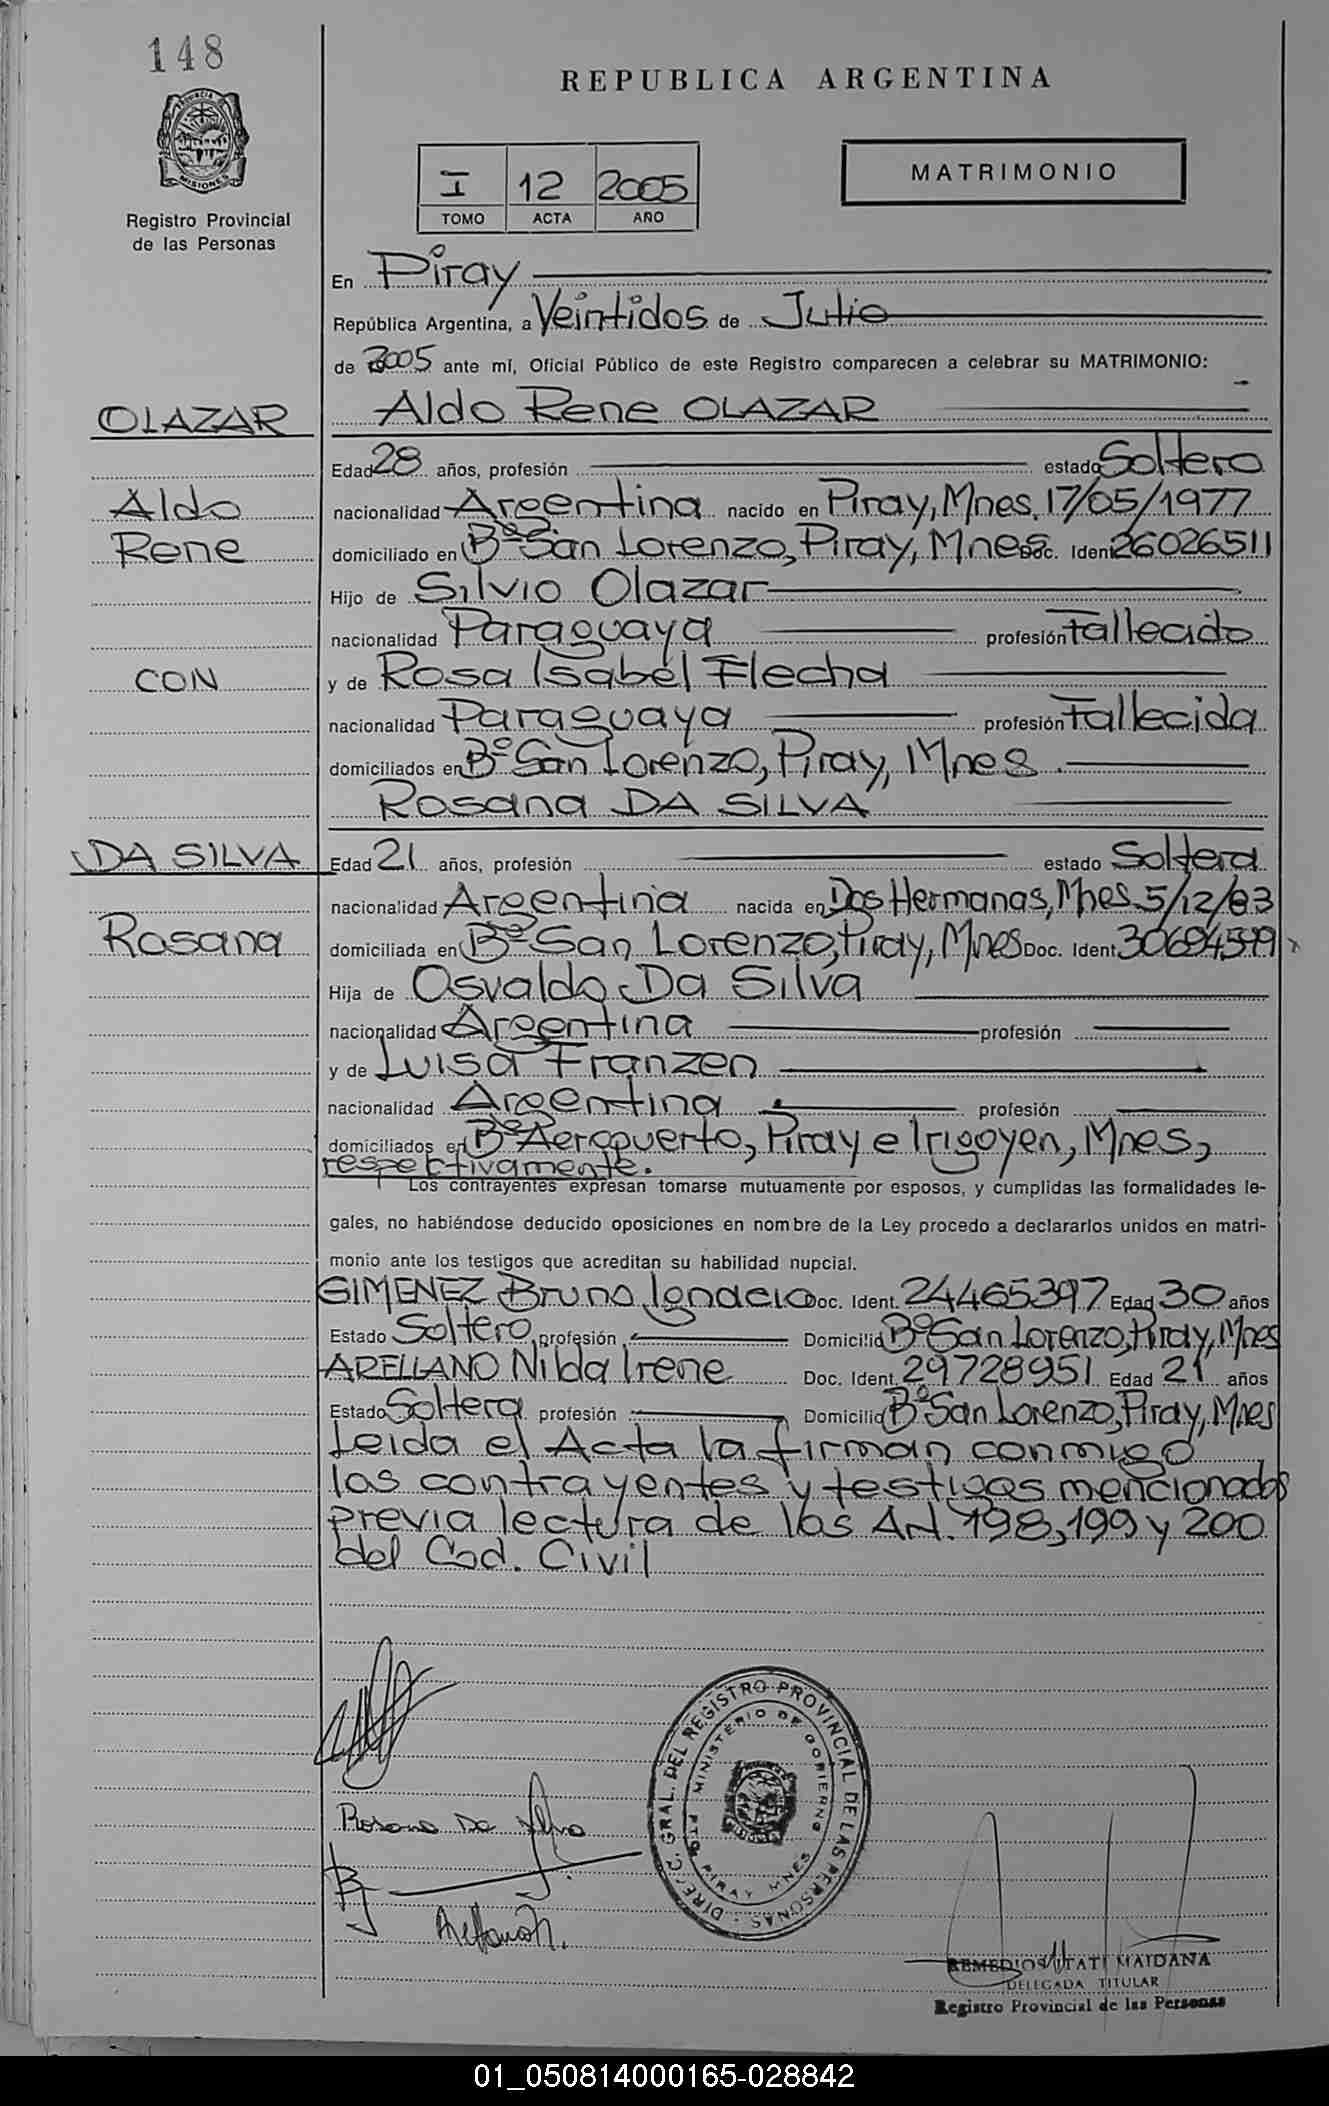 148
REPUBLICA ARGENTINA
PROVINCIA DE
MISIONES
Registro Provincial
de las Personas
I 12 2005
TOMO ACTA AÑO
MATRIMONIO
En Piray
República Argentina, a Veintidos de Julio
de 2005 ante mí, Oficial Público de este Registro comparecen a celebrar su MATRIMONIO:
OLAZAR Aldo Rene OLAZAR
Edad 28 años, profesión estado Soltero
Aldo nacionalidad Argentina nacido en Piray, Mnes, 17/05/1977
Rene domiciliado en Bº San Lorenzo, Piray, Mnes Doc. Ident 26026511
Hijo de Silvio Olazar
nacionalidad Paraguaya profesión Fallecido
CON y de Rosa Isabel Flecha
nacionalidad Paraguaya profesión Fallecida
domiciliados en Bº San Lorenzo, Piray, Mnes
Rosana DA SILVA
DA SILVA Edad 21 años, profesión estado Soltera
nacionalidad Argentina nacida en Dos Hermanas, Mnes 5/12/83
Rosana domiciliada en Bº San Lorenzo, Piray, Mnes Doc. Ident.
Hija de Osvaldo Da Silva
nacionalidad Argentina profesión
y de Luisa Franzen
nacionalidad Argentina profesión
domiciliados en Bº Aeropuerto, Piray e Irigoyen, Mnes,
respectivamente.
Los contrayentes expresan tomarse mutuamente por esposos, y cumplidas las formalidades le-
gales, no habiéndose deducido oposiciones en nombre de la Ley procedo a declararlos unidos en matri-
monio ante los testigos que acreditan su habilidad nupcial.
GIMENEZ Bruno Ignacio Doc. Ident. 24465397 Edad 30 años
Estado Soltero profesión Domicilio Bº San Lorenzo, Piray, Mnes
ARELLANO Nilda Irene Doc. Ident. 29728951 Edad 21 años
Estado Soltera profesión Domicilio Bº San Lorenzo, Piray, Mnes
Leida el Acta la firman conmigo
los contrayentes y testigos mencionados
previa lectura de los Art. 198, 199 y 200
del Cod. Civil
DIREC. GRAL. DEL REGISTRO PROVINCIAL DE LAS PERSONAS
MINISTERIO DE GOBIERNO
PTO. PIRAY MNES
Rosana Da Silva
REMEDIOS ITATI MAIDANA
DELEGADA TITULAR
Registro Provincial de las Personas
01_050814000165-028842